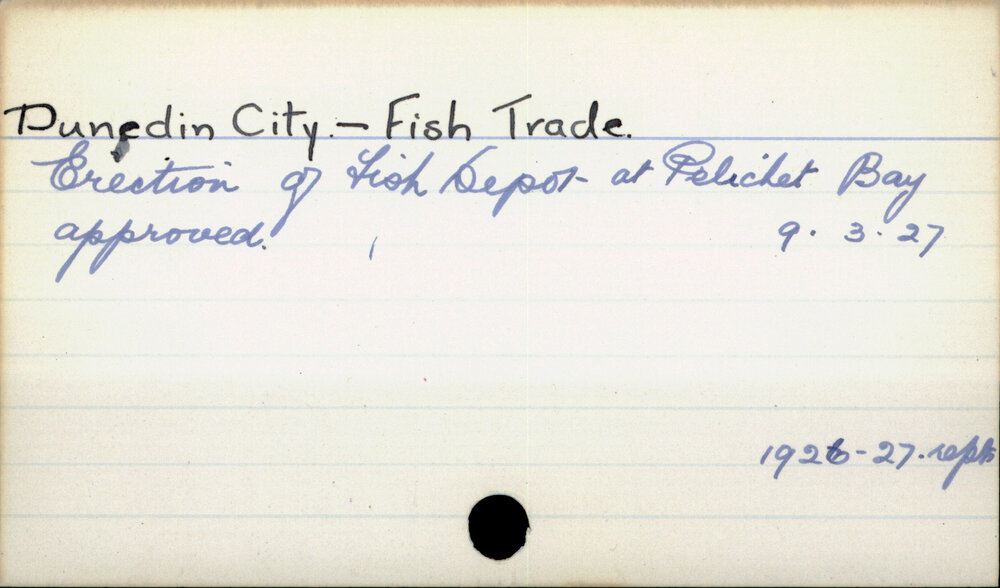 Dunedin City. — Fish Trade.
Erection of Fish Depot at Pelichet Bay
approved. 9. 3. 27
1926-27. repts